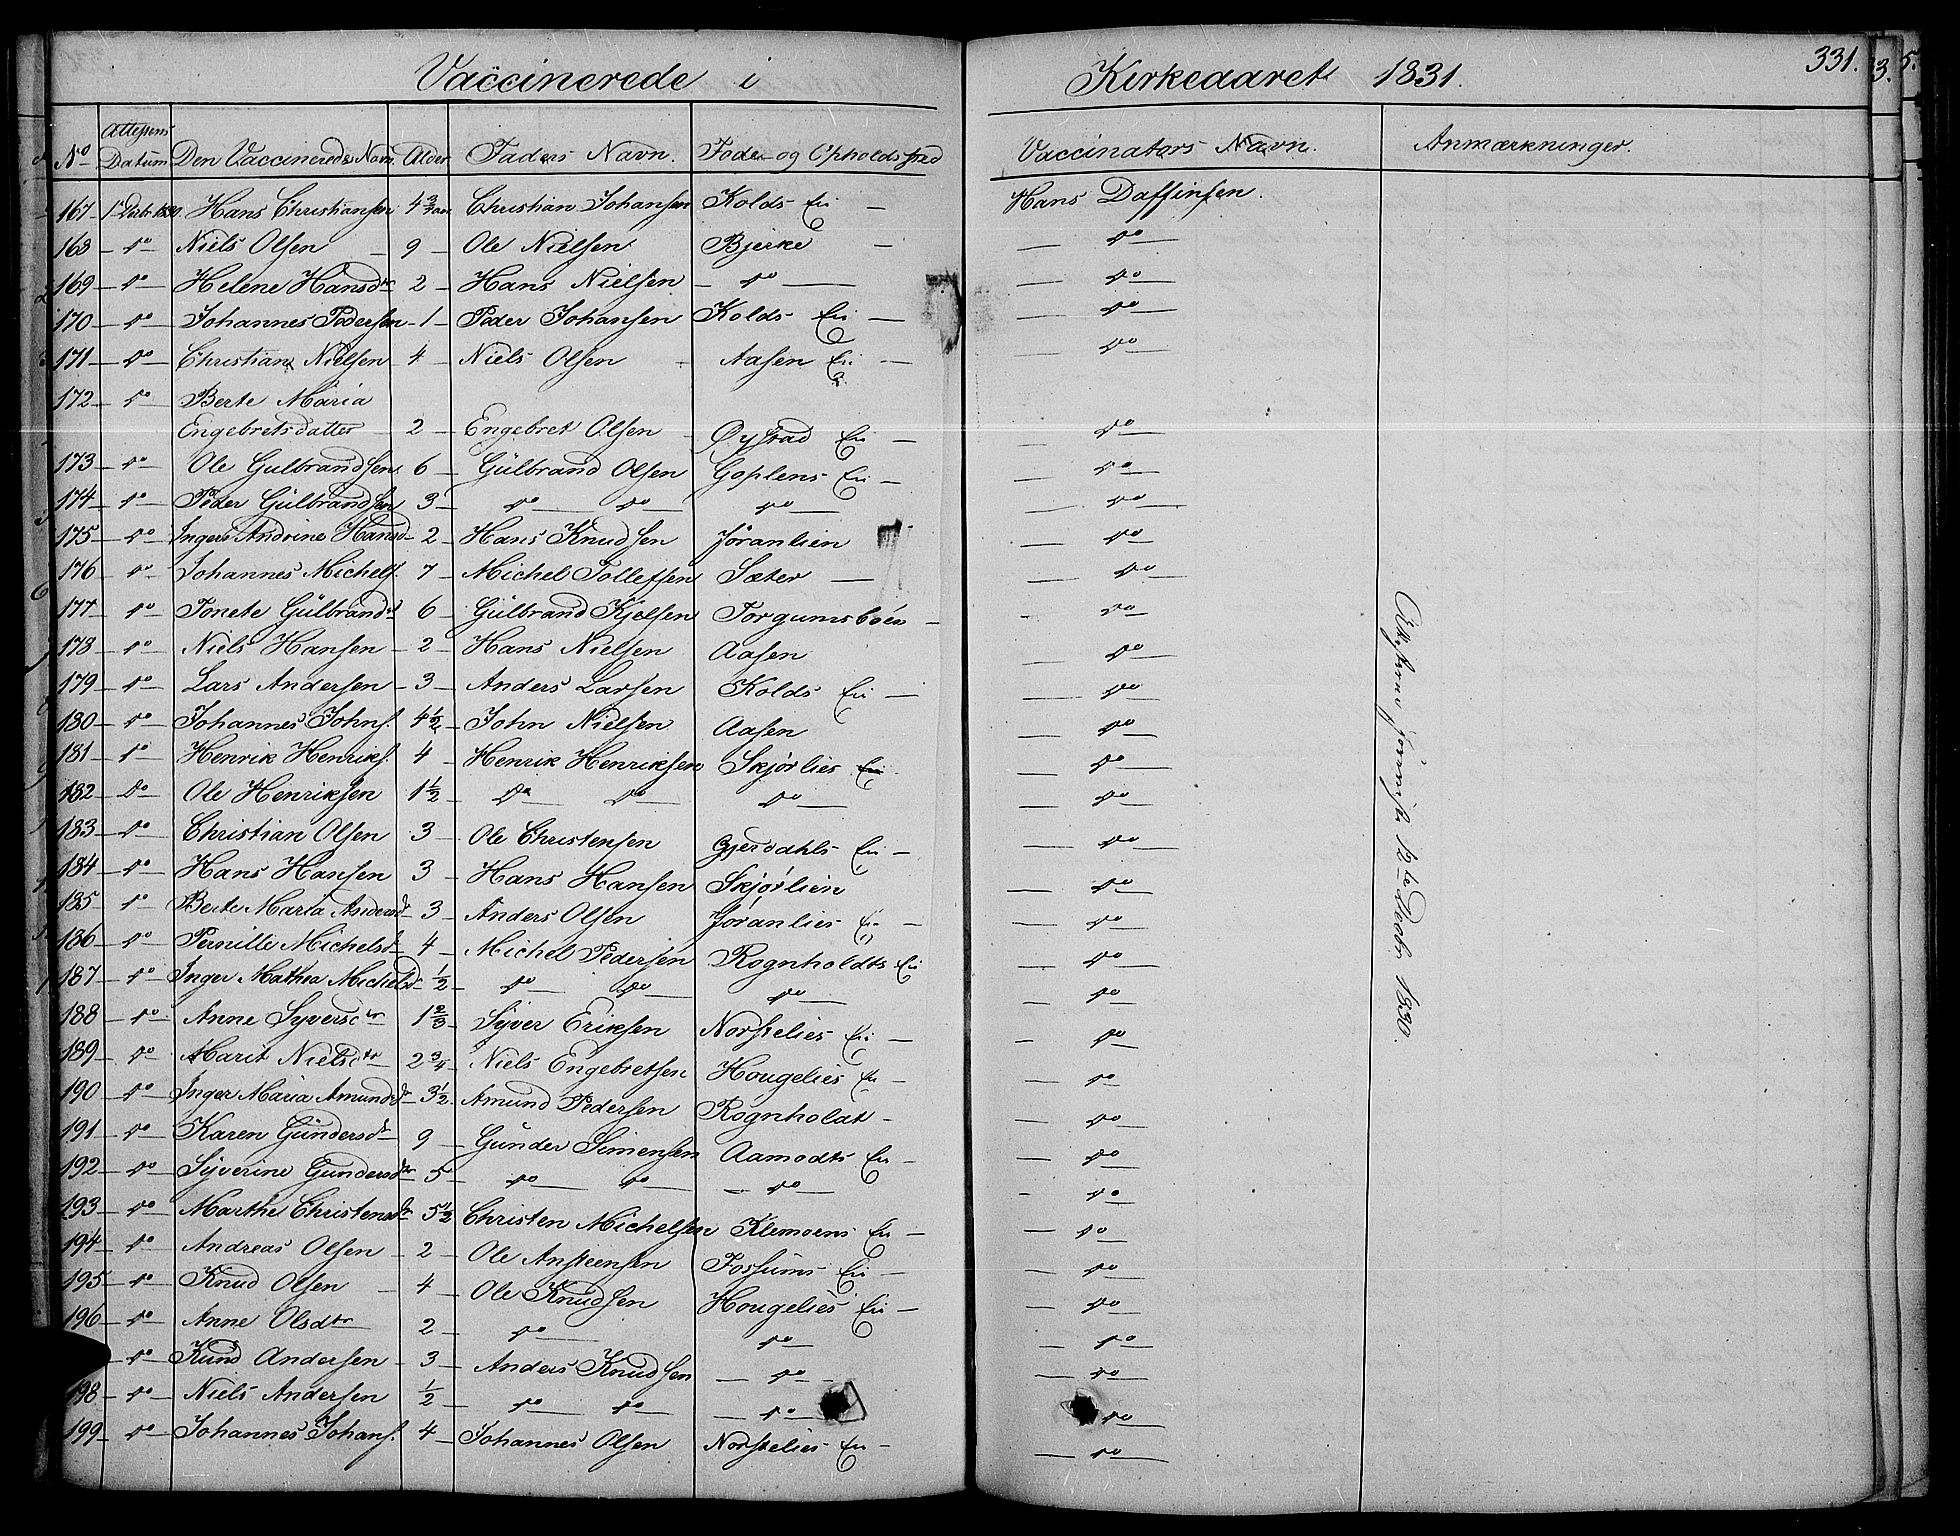 Vaccinerede i Kirkeaaret 1831. 331.
No Attestens Datum Den Vaccineredes Navn Alder Faders Navn. Føde og Opholdssted Vaccinators Navn. Anmærkninger.
167 1 Decbr 1830. Hans Christiansen 4 3/4 aar Christian Johansen Kolds Ei — Hans Daffinsen.
168 — do — Niels Olsen — 9 — Ole Nielsen Bjerke — — do —
169 — do — Helene Hansdr 2 — Hans Nielsen — do — — do —
170 — do — Johannes Pedersen — 1 — Peder Johansen Kolds Ei — — do —
171 — do — Christian Nielsen — 4 — Niels Olsen Aasen Ei — — do —
172 — do — Berte Maria
Engebretsdatter 2 — Engebret Olsen Øystad Ei — — do —
173 — do — Ole Gulbrandsen 6 — Gülbrand Olsen Goplens Ei — — do —
174 — do — Peder Gülbrandsen 3 — do — do — do — — do —
175 — do — Inger Andrine Hansd — 2 — Hans Knudsen Jøranlien — do —
176 — do — Johannes Michels. 7 — Michel Tollefsen Sæter — — do —
177 — do — Tonete Gülbrandd 6 — Gülbrand Kjelsen Torgumsbøen — — do —
178 — do — Niels Hansen — 2 — Hans Nielsen Aasen — do —
179 — do — Lars Andersen — 3 — Anders Larsen Kolds Ei — — do —
180 — do — Johannes Johns. 4 1/2 — John Nielsen Aasen — do —
181 — do — Henrik Henriks. 4 — Henrik Henriksen Skjørlies Ei — do —
182 — do — Ole Henriksen 1 1/2 — do — do — do — — do —
183 — do — Christian Olsen 3 — Ole Christensen Gjerdahls Ei — — do —
184 — do — Hans Hansen 3 — Hans Hansen Skjørlien — do —
185 — do — Berte Maria Andersd — 3 — Anders Olsen Jøranlies Ei — — do —
186 — do — Pernille Michelsd — 4 — Michel Pedersen Rognholdts Ei — do —
187 — do — Inger Mathea Michelsd — 1/2 — do — do — do — — do —
188 — do — Anne Syversdr 1 2/3 — Syver Eriksen Norstelies Ei — — do —
189 — do — Marit Nielsdtr 2 3/4 — Niels Engebretsen Hougelies Ei — — do
190 — do — Inger Maria Amundsd — 3 1/2 — Amund Pedersen Rognholdt — — do —
191 — do — Karen Gündersd 9 — Günder Simensen Aamodts Ei — — do —
192 — do — Syverine Gundersdr 5 — do — do — do — — do
193 — do — Marthe Christensdr 5 1/2 Christen Michelsen Klemoens Ei — — do
194 — do — Andreas Olsen — 2 — Ole Ansteensen Fossums Ei — — do —
195 — do — Knud Olsen — 4 — Ole Knudsen Hougelies Ei — — do —
196 — do — Anne Olsdtr 2 — do — do — — do —
— do — Knud Andersen — 3 — Anders Knudsen — do — — do —
198 — do — Niels Andersen 1/2 — do — do — do — — do —
199 — do — Johannes Johans. 4 — Johannes Olsen Norstelies Ei — — do —
1830.